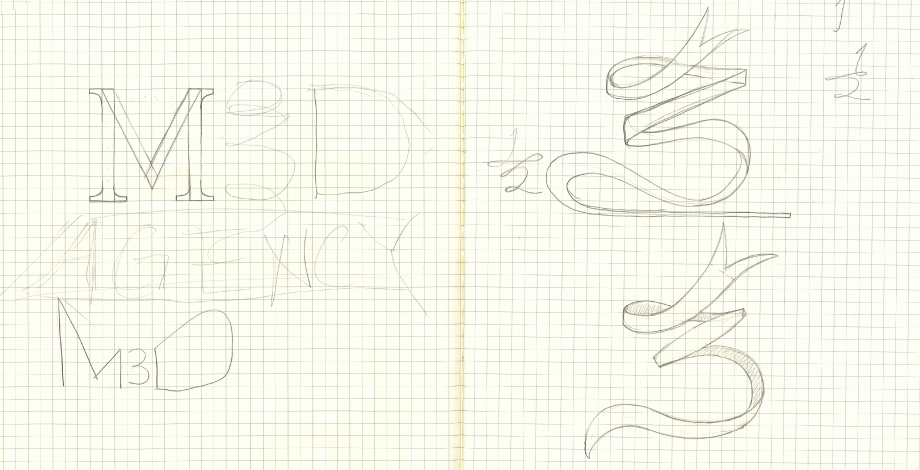 M3D
AGENCY
M3D
½
3
½
3